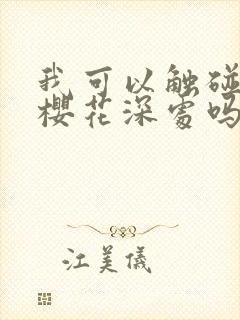 我可以触碰
樱花深处吗
江美仪